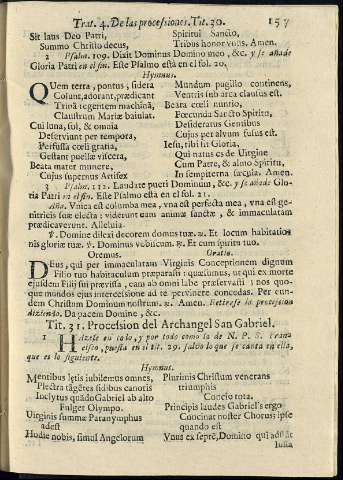 Trat. 4. De las procesiones. Tit. 30. 157
Sit laus Deo Patri,
Summo Christo decus,
Spiritui Sancto,
Tribus honor vnus. Amen.
2 Psalm. 109. Dixit Dominus Domino meo, &c. y se añade
Gloria Patri en el fin. Este Psalmo està en el fol. 20.
Hymnus.
QUem terra, pontus, sidera
Colunt, adorant, prædicant
Trinã regentem machinã,
Claustrum Mariæ baiulat.
Cui luna, sol, & omnia
Deserviunt per tempora,
Perfussa cœli gratia,
Gestant puellæ viscera,
Beata mater munere,
Cujus supernus Artifex
Mundum pugillo continens,
Ventris sub arca clausus est.
Beata cœli nuntio,
Fœcunda Sancto Spiritu,
Desideratus Gentibus
Cujus per alvum fusus est.
Iesu, tibi sit Gloria,
Qui natus es de Virgine
Cum Patre, & almo Spiritu,
In sempiterna sæcula. Amen.
3 Psalm. 112. Laudate pueri Dominum, &c. y se añade Glo-
ria Patri en el fin. Este Psalmo està en el fol. 21.
Aña. Vnica est columba mea, vna est perfecta mea, vna est ge-
nitricis suæ electa: viderunt eam animæ sanctæ, & immaculatam
prædicaverunt. Alleluia.
℣. Domine dilexi decorem domus tuæ. ℟. Et locum habitatio-
nis gloriæ tuæ. ℣. Dominus vobiscum. ℟. Et cum spiritu tuo.
Oremus. Oratio.
DEus, qui per immaculatam Virginis Conceptionem dignum
Filio tuo habitaculum præparasti: quæsumus, ut qui ex morte
ejusdem Filij sui prævissa, eam ab omni labe præservasti: nos quo-
que mundos ejus intercessione ad te pervenire concedas. Per eun-
dem Christum Dominum nostrum. ℟. Amen. Retirese la procesion
diziendo. Da pacem Domine, &c.
Tit. 31. Procession del Archangel San Gabriel.
1 Hazese en todo, y por todo como la de N. P. S. Fran-
cisco, puesta en el tit. 29. salvo lo que se canta en ella,
que es lo siguiente.
Hymnus.
Mentibus lętis iubilemus omnes,
Plectra tãgētes fidibus canoris
Inclytus quãdo Gabriel ab alto
Fulget Olympo.
Virginis summæ Paranymphus
adest
Hodie nobis, simul Angelorum
Plurimis Christum venerans
triumphis
Concio tota.
Principis laudes Gabriel is ergo
Concinat noster Chorus: ipse
quando est
Vnus ex septē, Domino qui adstãt
Iussa